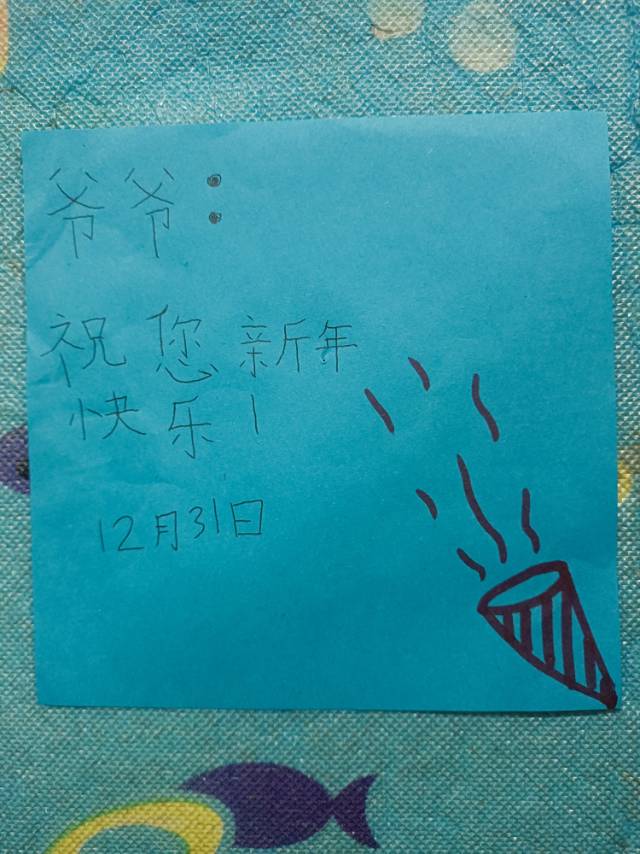 爷爷：
祝您新年
快乐！
12月31日